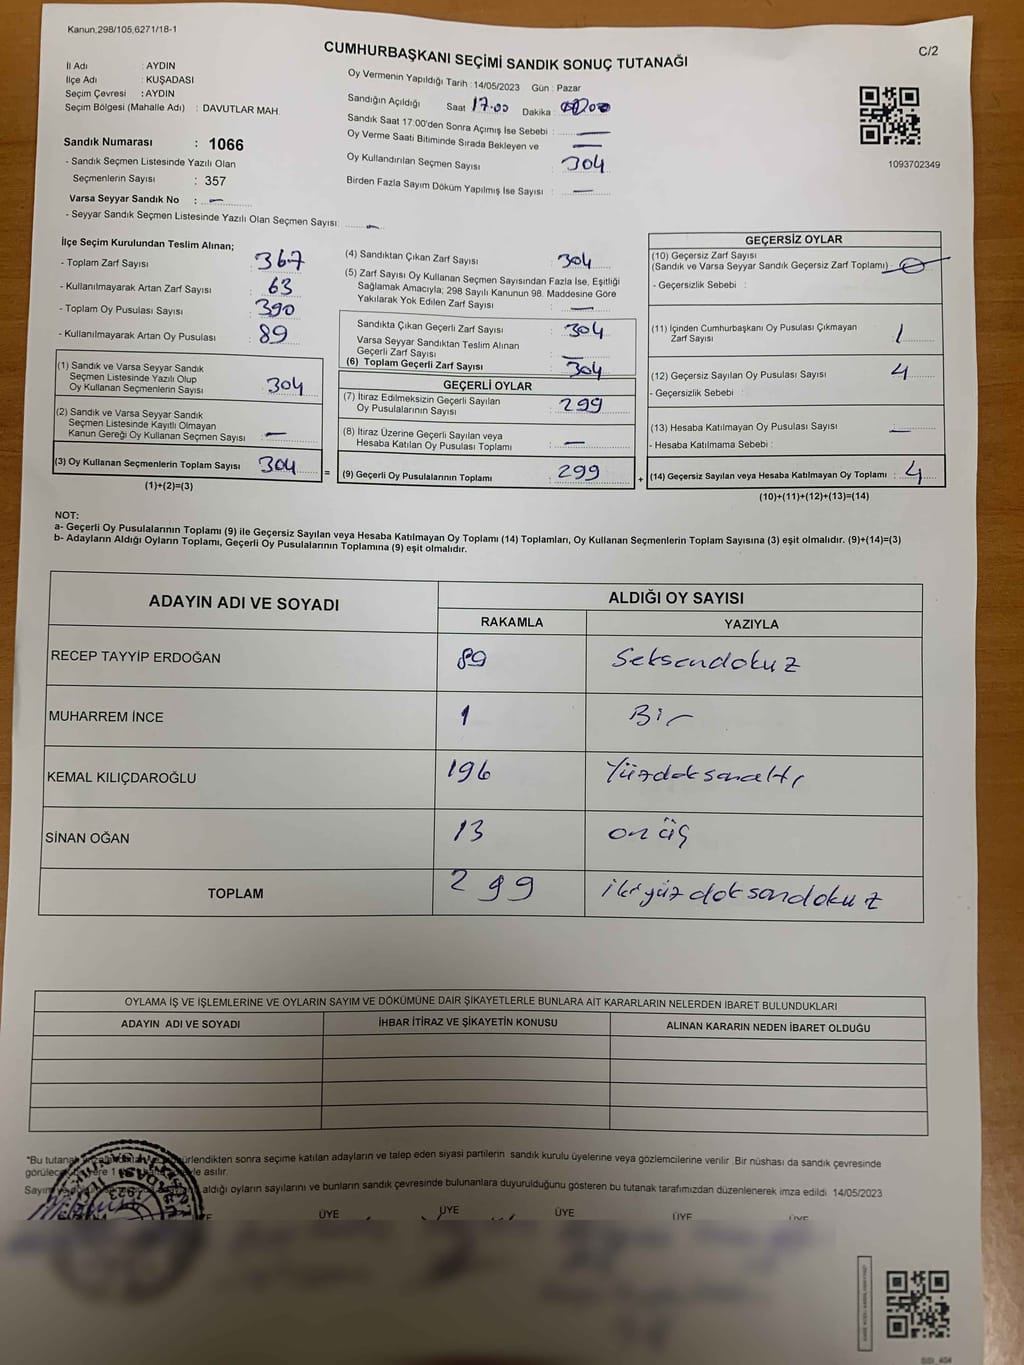 Kanun,298/105,6271/18-1
C/2
CUMHURBAŞKANI SEÇİMİ SANDIK SONUÇ TUTANAĞI
İl Adı : AYDIN
İlçe Adı : KUŞADASI
Seçim Çevresi : AYDIN
Seçim Bölgesi (Mahalle Adı) : DAVUTLAR MAH.
Oy Vermenin Yapıldığı Tarih : 14/05/2023 Gün : Pazar
Sandığın Açıldığı Saat 17.00 Dakika :
Sandık Saat 17.00'den Sonra Açımış İse Sebebi : —
Oy Verme Saati Bitiminde Sırada Bekleyen ve —
Oy Kullandırılan Seçmen Sayısı : 304
Birden Fazla Sayım Döküm Yapılmış İse Sayısı : —
1093702349
Sandık Numarası : 1066
- Sandık Seçmen Listesinde Yazılı Olan
Seçmenlerin Sayısı : 357
Varsa Seyyar Sandık No : —
- Seyyar Sandık Seçmen Listesinde Yazılı Olan Seçmen Sayısı: —
İlçe Seçim Kurulundan Teslim Alınan;
- Toplam Zarf Sayısı : 367
- Kullanılmayarak Artan Zarf Sayısı : 63
- Toplam Oy Pusulası Sayısı : 390
- Kullanılmayarak Artan Oy Pusulası : 89
(1) Sandık ve Varsa Seyyar Sandık
Seçmen Listesinde Yazılı Olup
Oy Kullanan Seçmenlerin Sayısı : 304
(2) Sandık ve Varsa Seyyar Sandık
Seçmen Listesinde Kayıtlı Olmayan
Kanun Gereği Oy Kullanan Seçmen Sayısı : —
(3) Oy Kullanan Seçmenlerin Toplam Sayısı : 304
(1)+(2)=(3)
=
(4) Sandıktan Çıkan Zarf Sayısı : 304
(5) Zarf Sayısı Oy Kullanan Seçmen Sayısından Fazla İse, Eşitliği
Sağlamak Amacıyla; 298 Sayılı Kanunun 98. Maddesine Göre
Yakılarak Yok Edilen Zarf Sayısı : —
Sandıkta Çıkan Geçerli Zarf Sayısı : 304
Varsa Seyyar Sandıktan Teslim Alınan
Geçerli Zarf Sayısı : —
(6) Toplam Geçerli Zarf Sayısı : 304
GEÇERLİ OYLAR
(7) İtiraz Edilmeksizin Geçerli Sayılan
Oy Pusulalarının Sayısı : 299
(8) İtiraz Üzerine Geçerli Sayılan veya
Hesaba Katılan Oy Pusulası Toplamı : —
(9) Geçerli Oy Pusulalarının Toplamı : 299
+
GEÇERSİZ OYLAR
(10) Geçersiz Zarf Sayısı
(Sandık ve Varsa Seyyar Sandık Geçersiz Zarf Toplamı) : 0
- Geçersizlik Sebebi :
(11) İçinden Cumhurbaşkanı Oy Pusulası Çıkmayan
Zarf Sayısı : 1
(12) Geçersiz Sayılan Oy Pusulası Sayısı : 4
- Geçersizlik Sebebi :
(13) Hesaba Katılmayan Oy Pusulası Sayısı : —
- Hesaba Katılmama Sebebi :
(14) Geçersiz Sayılan veya Hesaba Katılmayan Oy Toplamı : 4
(10)+(11)+(12)+(13)=(14)
NOT:
a- Geçerli Oy Pusulalarının Toplamı (9) ile Geçersiz Sayılan veya Hesaba Katılmayan Oy Toplamı (14) Toplamları, Oy Kullanan Seçmenlerin Toplam Sayısına (3) eşit olmalıdır. (9)+(14)=(3)
b- Adayların Aldığı Oyların Toplamı, Geçerli Oy Pusulalarının Toplamına (9) eşit olmalıdır.
ADAYIN ADI VE SOYADI ALDIĞI OY SAYISI
RAKAMLA YAZIYLA
RECEP TAYYİP ERDOĞAN 89 Seksendokuz
MUHARREM İNCE 1 Bir
KEMAL KILIÇDAROĞLU 196 Yüzdoksanaltı
SİNAN OĞAN 13 on üç
TOPLAM 299 ikiyüzdoksandokuz
OYLAMA İŞ VE İŞLEMLERİNE VE OYLARIN SAYIM VE DÖKÜMÜNE DAİR ŞİKAYETLERLE BUNLARA AİT KARARLARIN NELERDEN İBARET BULUNDUKLARI
ADAYIN ADI VE SOYADI İHBAR İTİRAZ VE ŞİKAYETİN KONUSU ALINAN KARARIN NEDEN İBARET OLDUĞU
*Bu tutanak sonra seçime katılan adayların ve talep eden siyasi partilerin sandık kurulu üyelerine veya gözlemcilerine verilir .Bir nüshası da sandık çevresinde
asılır.
aldığı oyların sayılarını ve bunların sandık çevresinde bulunanlara duyurulduğunu gösteren bu tutanak tarafımızdan düzenlenerek imza edildi. 14/05/2023
ÜYE ÜYE ÜYE ÜYE ÜYE